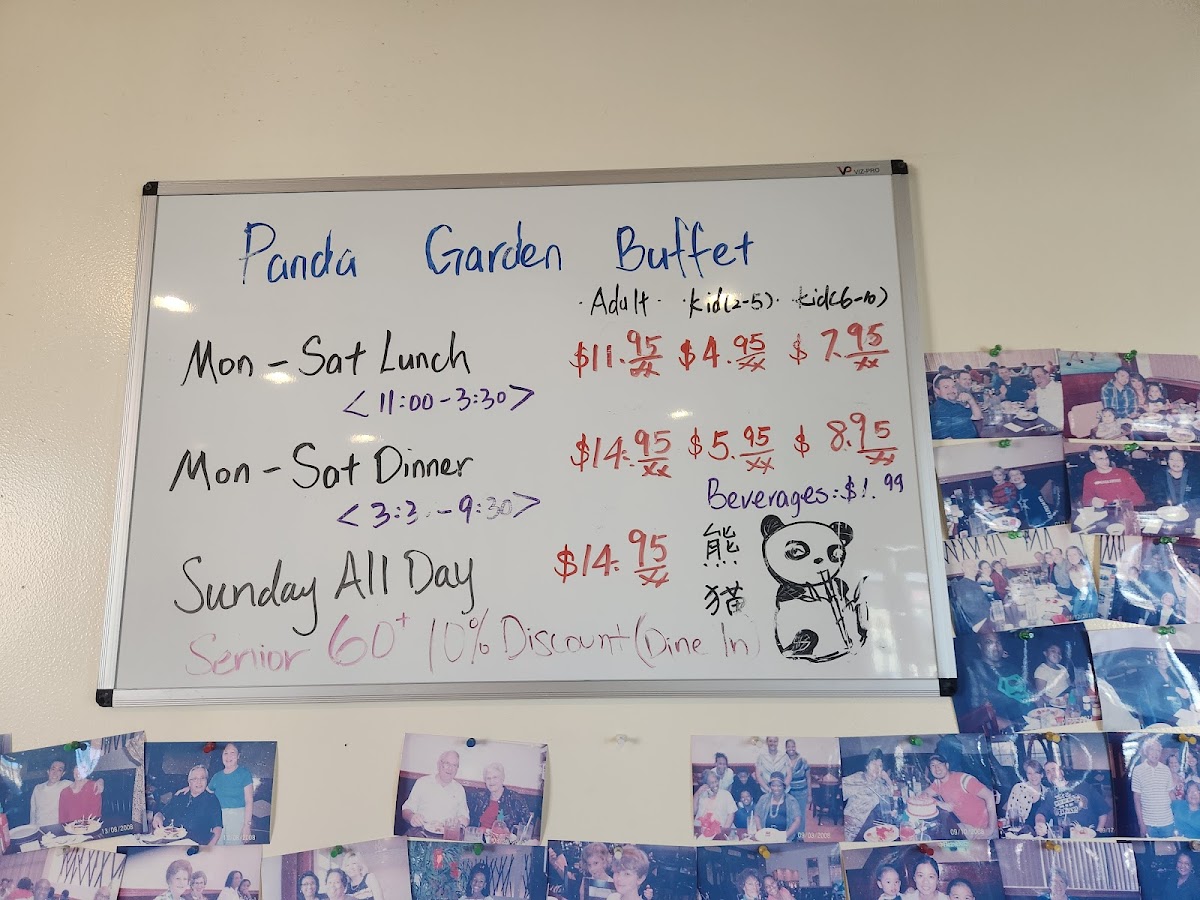 VP VIZ-PRO
Panda Garden Buffet
·Adult· ·kid(2-5)· ·kid(6-10)
Mon-Sat Lunch $11.95 $4.95 $7.95
<11:00-3:30>
Mon-Sat Dinner $14.95 $5.95 $8.95
<3:3 -9:30>
Beverages:$1.99
Sunday All Day $14.95
熊
猫
Senior 60+ 10% Discount (Dine In)